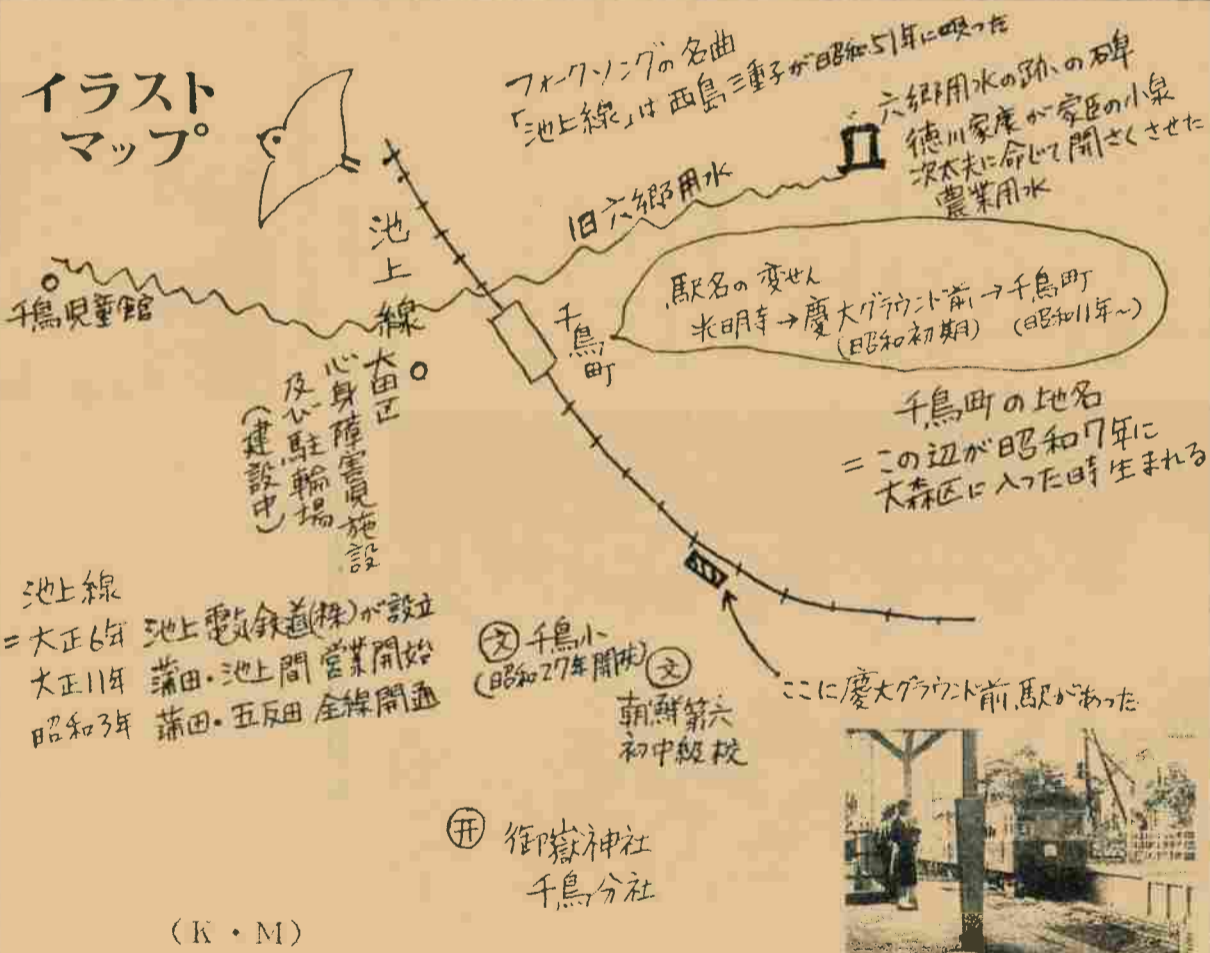 イラスト
マップ
フォークソングの名曲
「池上線」は西島三重子が昭和51年に唄った
六郷用水の跡の碑
徳川家康が家臣の小泉
次太夫に命じて開さくさせた
農業用水
旧六郷用水
池上線
千鳥児童館
千鳥町
駅名の変せん
光明寺→慶大グラウンド前→千鳥町
(昭和初期) (昭和11年~)
大田区
心身障害児施設
及び駐輪場
(建設中)
千鳥町の地名
=この辺が昭和7年に
大森区に入った時生まれる
池上線
=大正6年 池上電気鉄道(株)が設立
大正11年 蒲田・池上間 営業開始
昭和3年 蒲田・五反田 全線開通
文 千鳥小
(昭和27年開校)
文
朝鮮第六
初中級校
ここに慶大グラウンド前駅があった
御嶽神社
千鳥分社
(K・M)